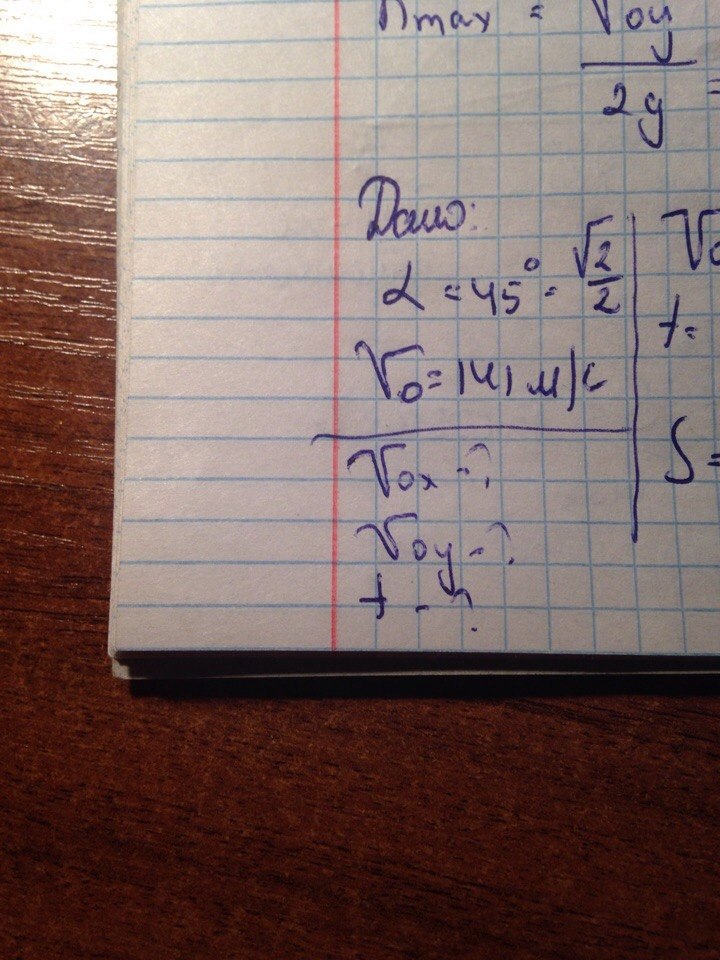 max = V₀y
2g =
Дано:
α = 45° = √2/2
V₀ = 141 м/с
V₀x - ?
V₀y - ?
t - ?
V₀
t =
S =